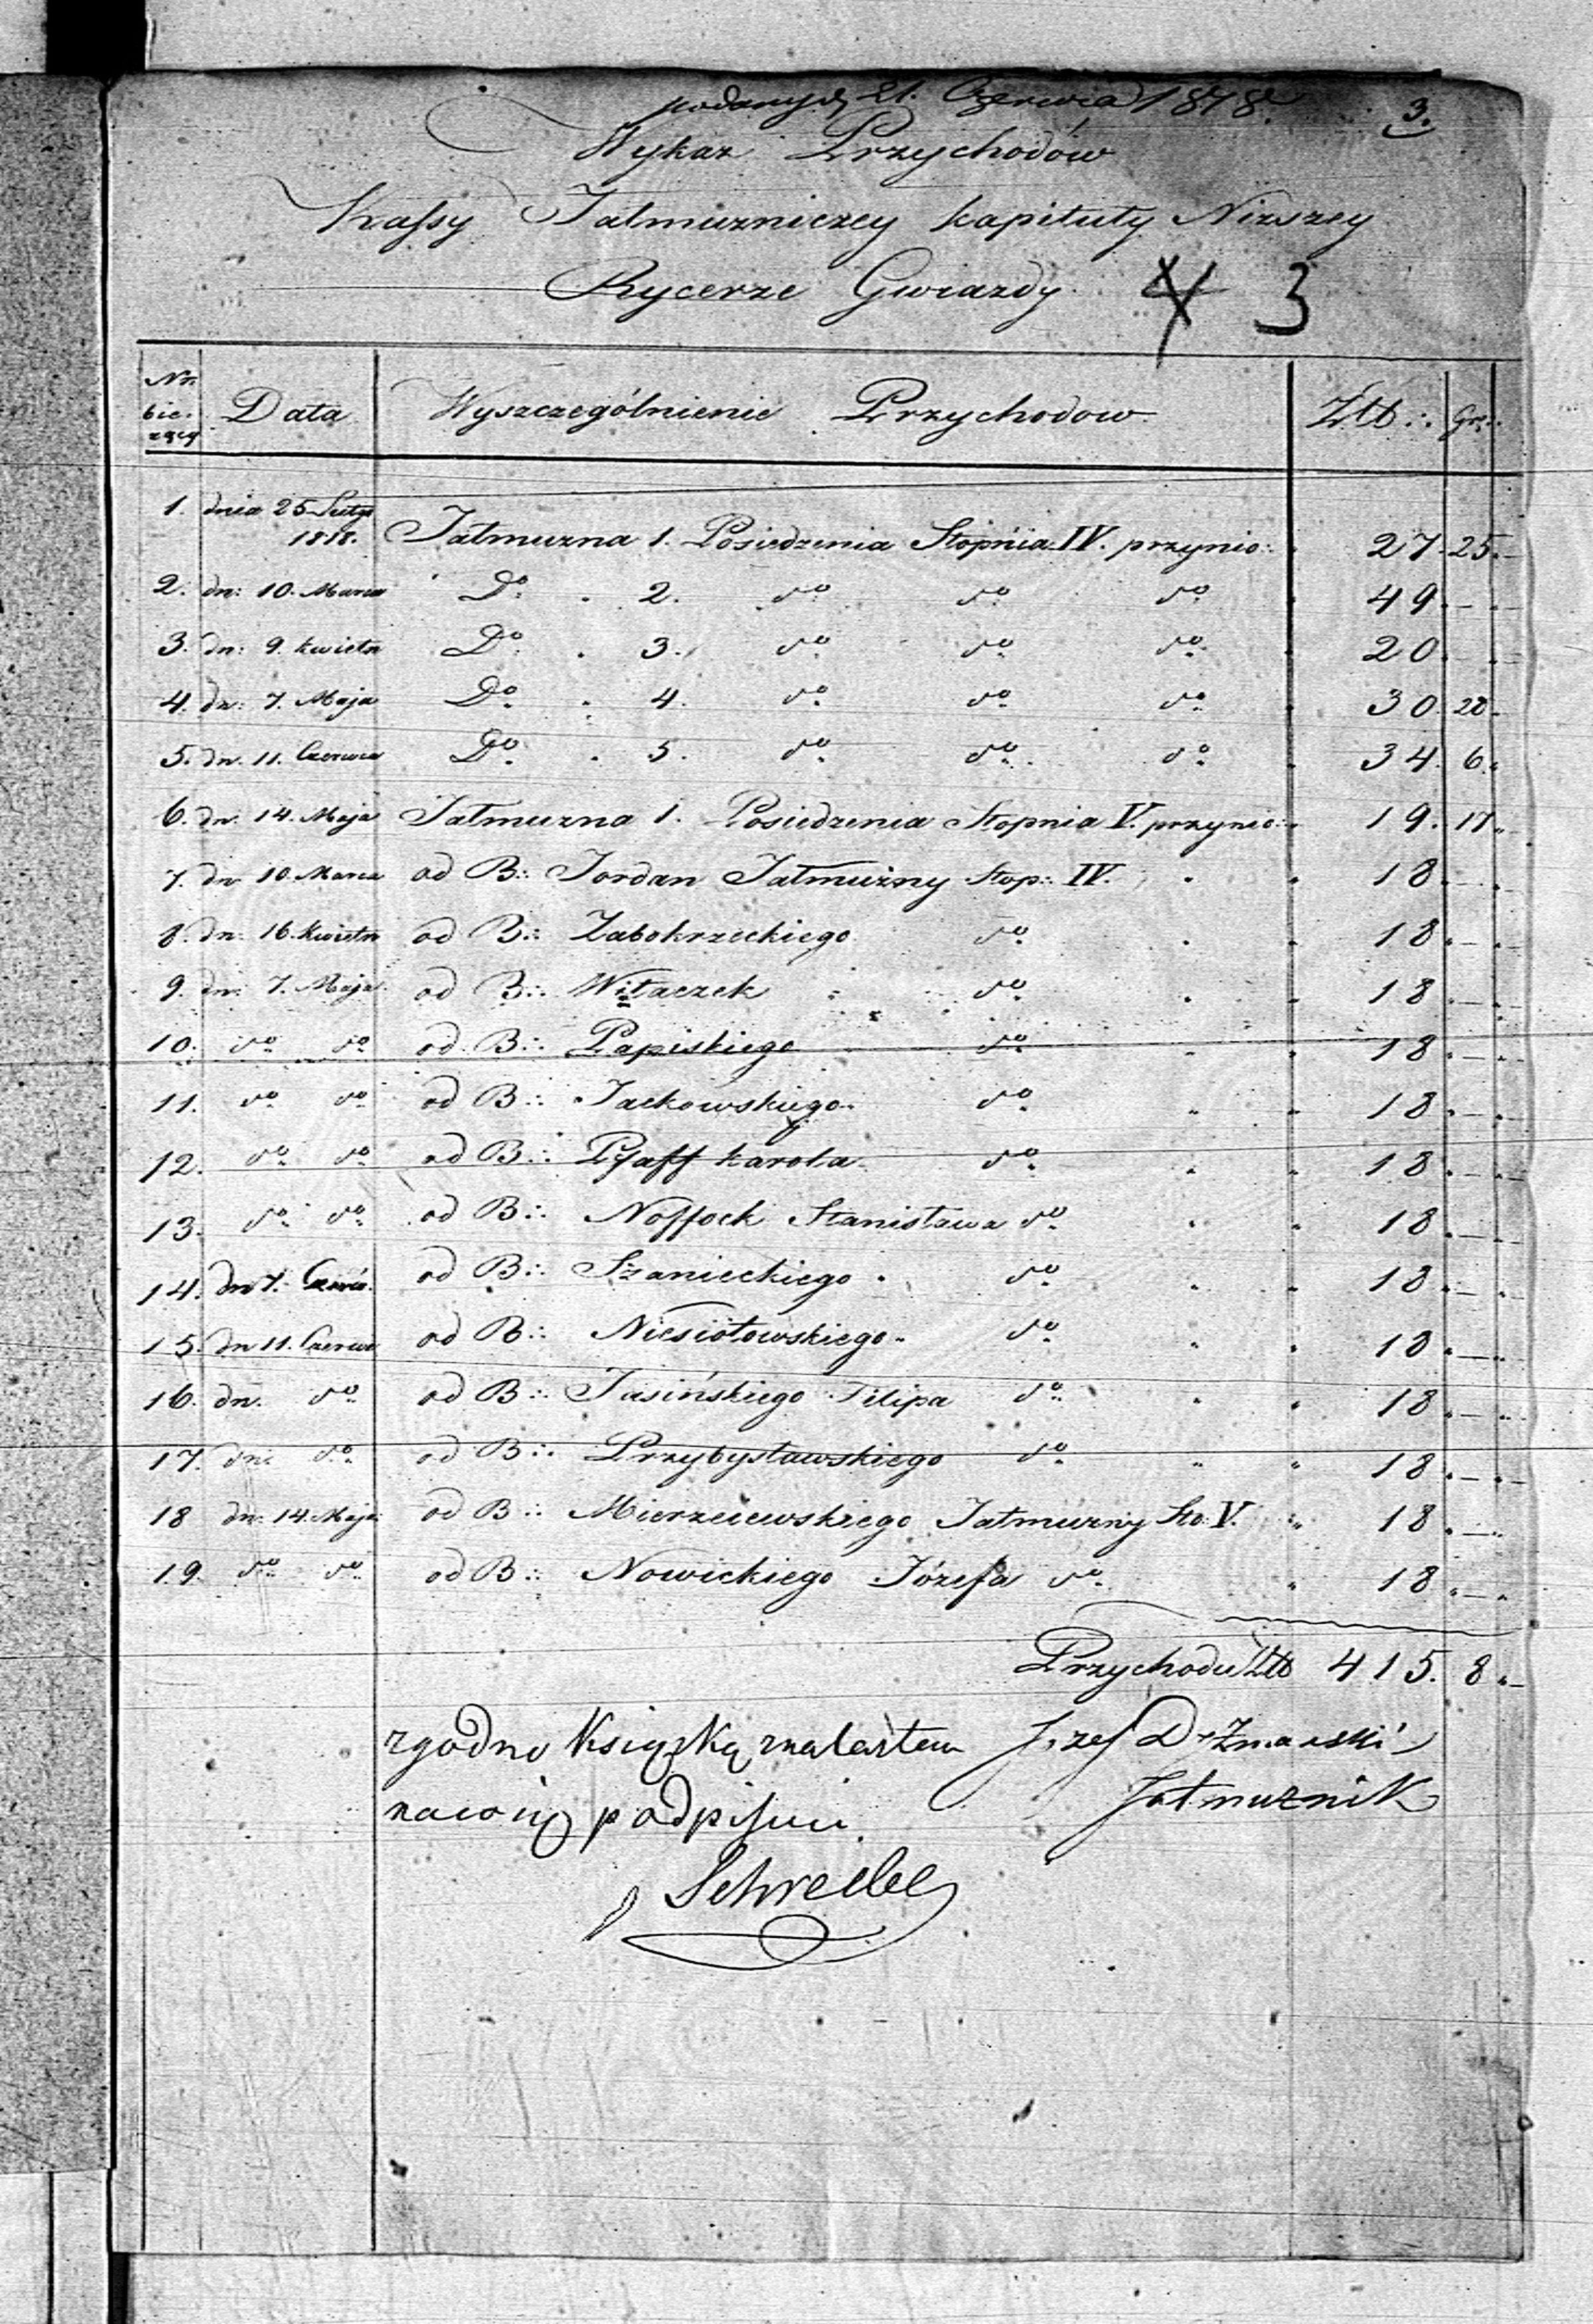 podany d 21. Czerwca 1818. 3.
Wykaz Przychodów
Kassy Jałmużniczey Kapituły Niższey
Rycerze Gwiazdy 3
Nr. bie- żący Data Wyszczególnienie Przychodow Złt: Gr:
1. dnia 25 Lutgo 1818. Jałmuzna 1. Posiedzenia Stopnia IV. przynio: 27 25
2. dn: 10. Marca Do 2. do do do 49 —
3. dn: 9. Kwietn Do 3. do do do 20
4. dn: 7. Maja Do 4. do do do 30 20
5. dn. 11. Czerwca Do 5. do do do 34 6
6. dn. 14. Maja Jałmuzna 1. Posiedzenia Stopnia V. przynio: 19. 17
7. dn 10. Marca od B∴ Jordan Jałmużny Stop: IV. 18 —
8. dn: 16. Kwietn od B∴ Zabokrzeckiego do 18 —
9. dn. 7. Maja od B∴ Witaczek do 18 —
10. do do od B∴ Papiskiego do 18 —
11. do do od B∴ Jackowskiego do 18 —
12. do do od B∴ Pfaff Karola do 18 —
13. do do od B∴ Noffock Stanisława do 18 —
14. dn 7. od B∴ Szanieckiego do 18 —
15. dn 11. Czerwc od B∴ Niesiołowskiego do 18 —
16. dn. do od B∴ Jasińskiego Filipa do 18 —
17. dn: do od B∴ Przybysławskiego do 18 —
18 dn. 14. Maja od B∴ Mierzeiewskiego Jałmużny Sto: V. 18 —
19. do do od B∴ Nowickiego Józefa do 18 —
Przychodu Złt 415. 8
zgodno Książką
Jałmużnik
podpisuię